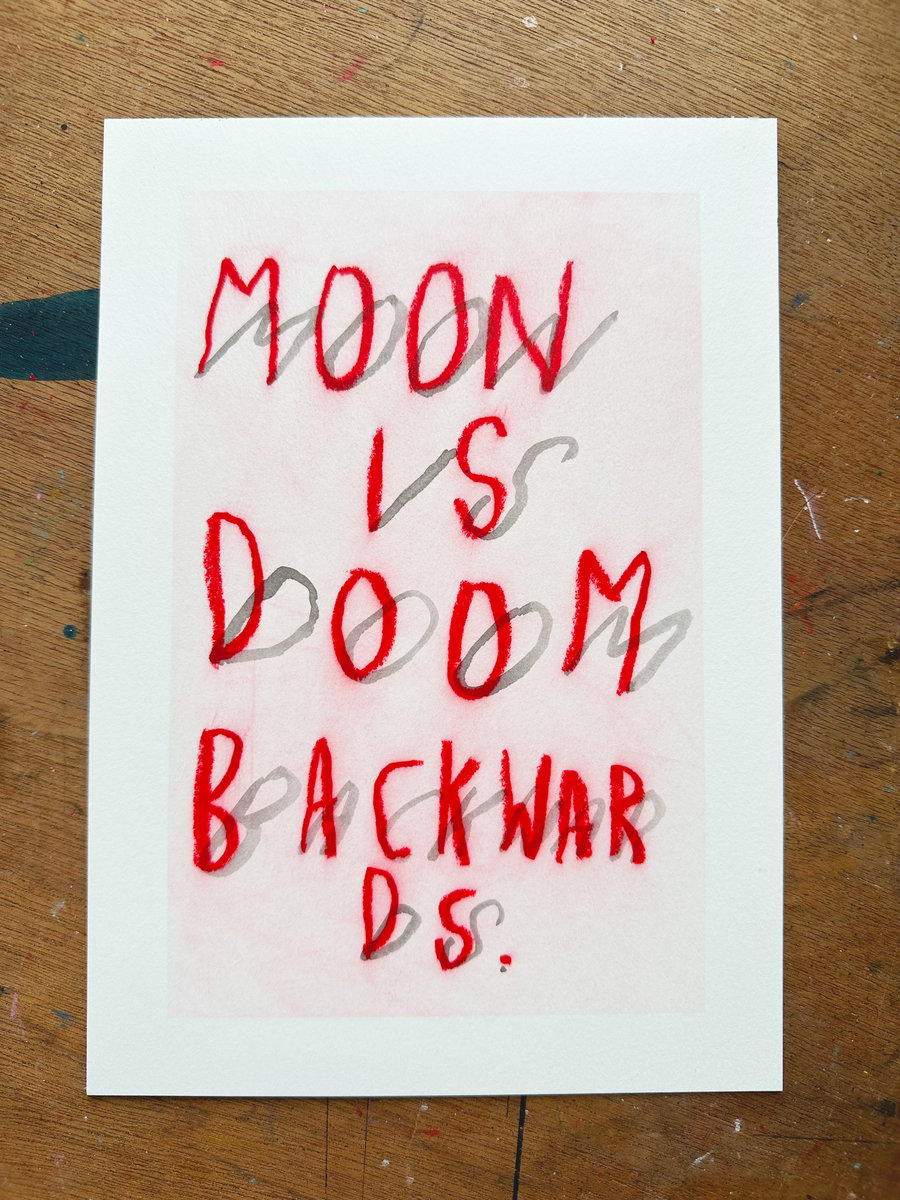 MOON
IS
DOOM
BACKWAR
DS.